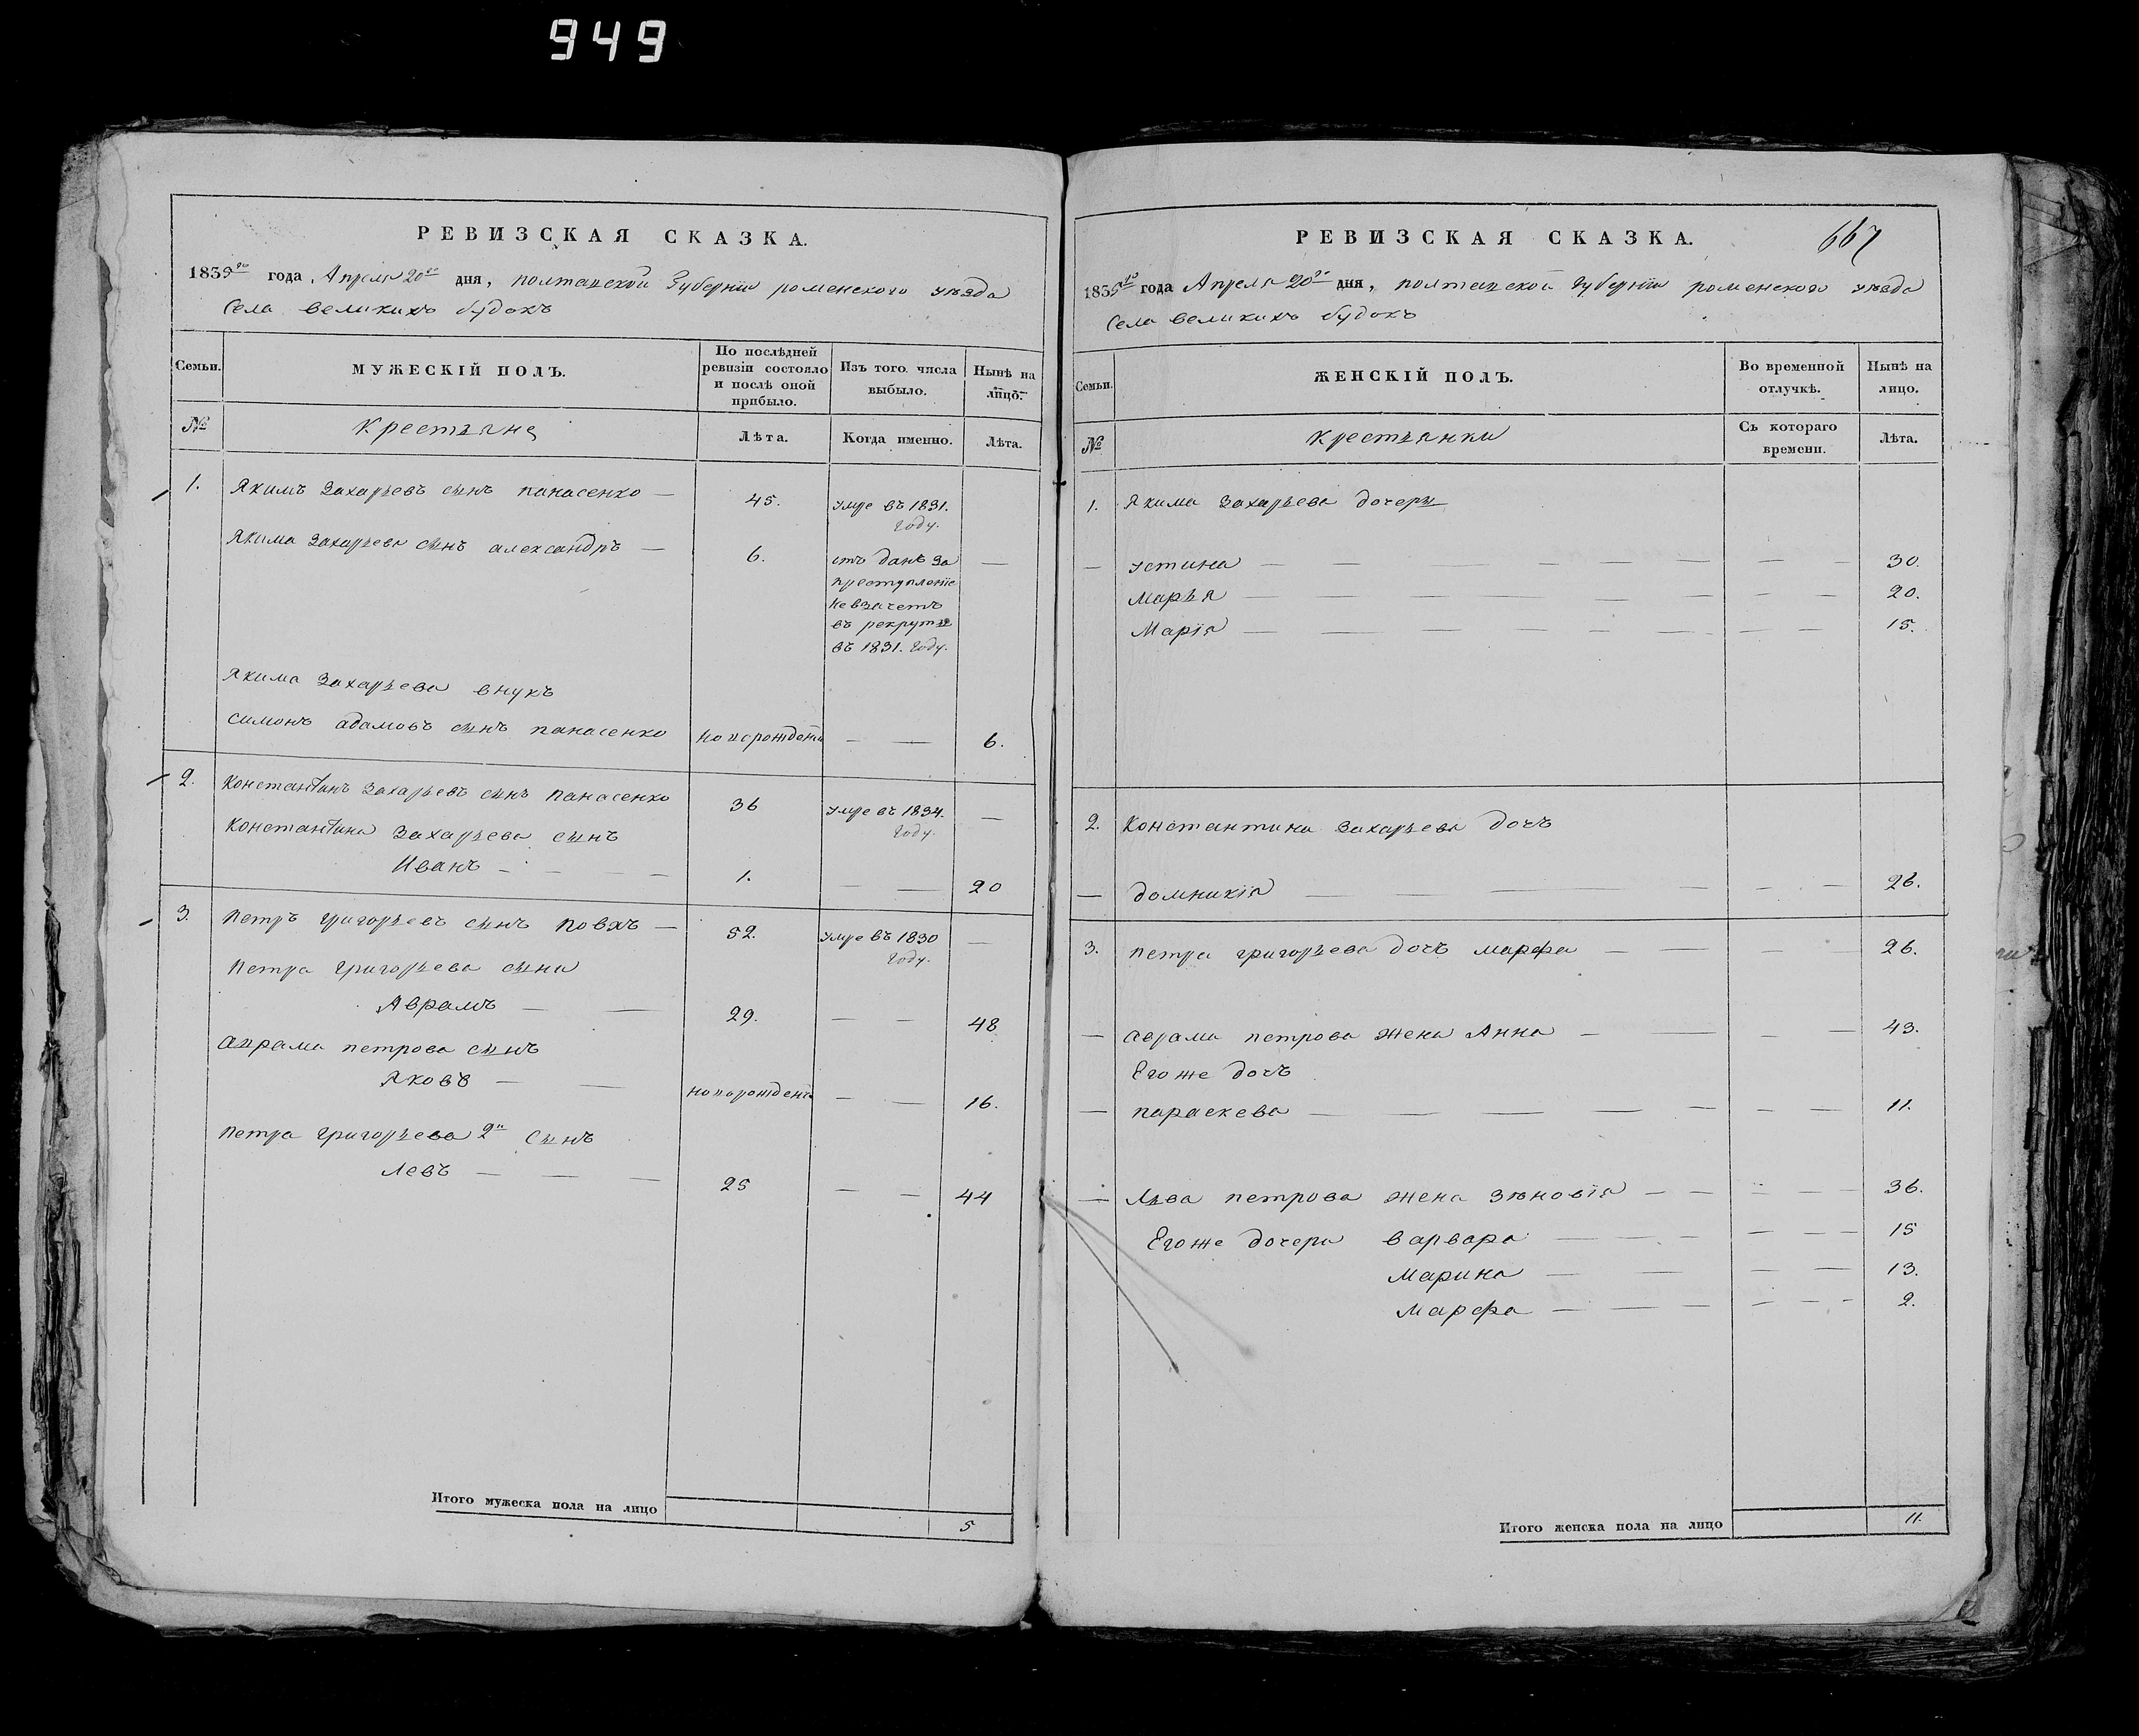 949
РЕВИЗСКАЯ СКАЗКА.
1835го года, Апреля 20го дня, полтавской Губернии роменского уѣзда
Села великихъ будокъ
Семьи.
МУЖЕСКІЙ ПОЛЪ.
По послѣдней ревизіи состояло и послѣ оной прибыло.
Изъ того числа выбыло.
Нынѣ на лицо.
№
Крестьяне
Лѣта.
Когда именно.
Лѣта.
1. Якимъ Захарьевъ сынъ панасенко — 45. умре въ 1831. году.
Якима Захарьева сынъ александръ — 6. отъ данъ за —
преступленіе
не взачетъ
въ рекруты
въ 1831. году.
Якима Захарьева внукъ
симонъ адамовъ сынъ панасенко новорожденъ — — 6.
2. Константинъ Захарьевъ сынъ панасенко 36 умре въ 1834. году. —
Константина Захарьева сынъ
Иванъ — — — 1. — — 20
3. петръ григорьевъ сынъ повхъ — 52. умре въ 1830 году. —
Петра григорьева сыни
Аврамъ — — 29. — — 48
аврама петрова сынъ
Яковъ — — новорожденъ — — 16.
петра григорьева 2й сынъ
Левъ — — — 25 — — 44
Итого мужеска пола на лицо 5
РЕВИЗСКАЯ СКАЗКА.
667
1835го года Апреля 20го дня, полтавской губерніи роменского уѣзда
Села великихъ будокъ
Семьи.
ЖЕНСКІЙ ПОЛЪ.
Во временной отлучкѣ.
Нынѣ на лицо.
№
Крестьянки
Съ котораго времени.
Лѣта.
1. Якима Захарьева дочери
— устина — — — 30.
марья — — — 20.
Марія — — — 15.
2. Константина Захарьева дочъ
— домникія — — — 26.
3. петра григорьева дочъ марфа — — — 26.
— аврама петрова жена Анна — — — 43.
Егоже дочъ
— параскева — — — 11.
— Льва петрова жена зѣновія — — — 36.
Егоже дочери варвара — — — 15
Марина — — — 13.
Марфа — — — 2.
Итого женска пола на лицо 11.